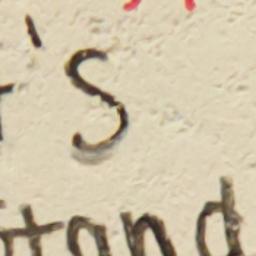 's
tand